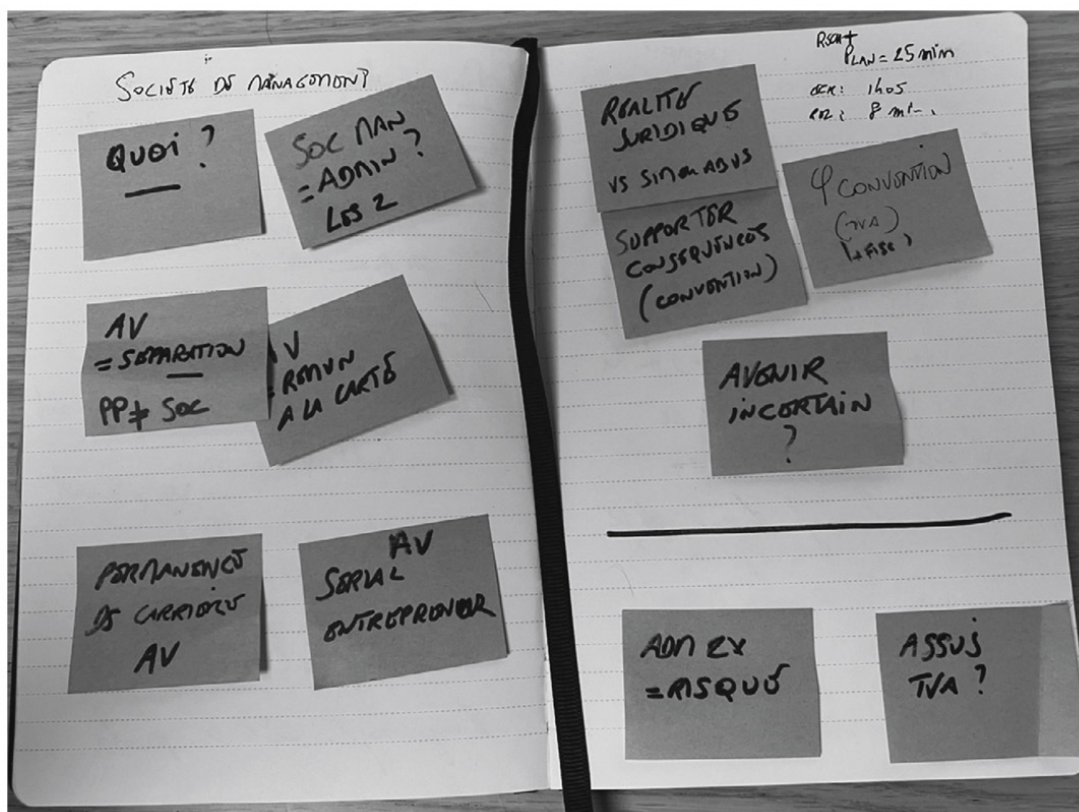 SOCIÉTÉ DE MANAGEMENT
QUOI ?
SOC MAN
= ADMIN ?
LES 2
AV
= SÉPARATION
PP ≠ SOC
AV
= REMUN
A LA CARTE
PERMANENCE
DE CARRIÈRE
AV
AV
SERIAL
ENTREPRENEUR
PLAN = 25 min
1h05
8 min.
REALITÉ
JURIDIQUE
VS SIM ou ABUS
SUPPORTER
CONSÉQUENCES
(CONVENTION)
CONVENTION
(TVA)
AVENIR
INCERTAIN
?
ADM EX
= RISQUE
ASSUJ
TVA ?